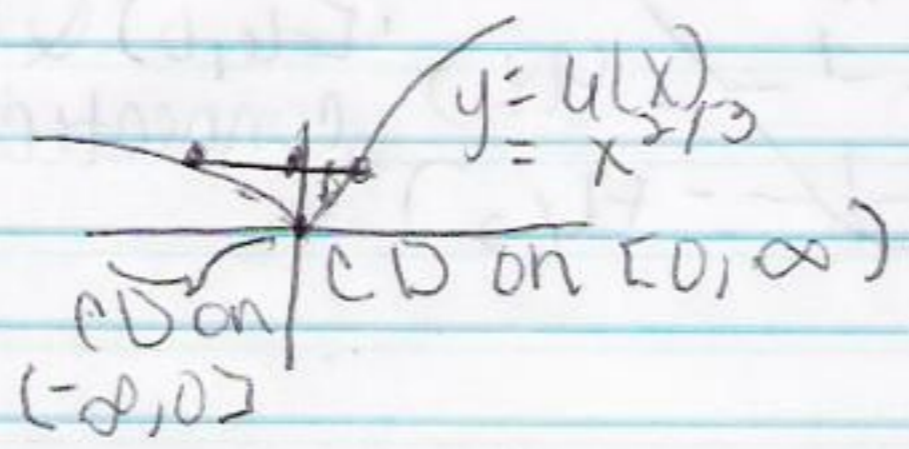 y = u(x)
= x^2/3
CD on [0, ∞)
CD on
(-∞, 0]